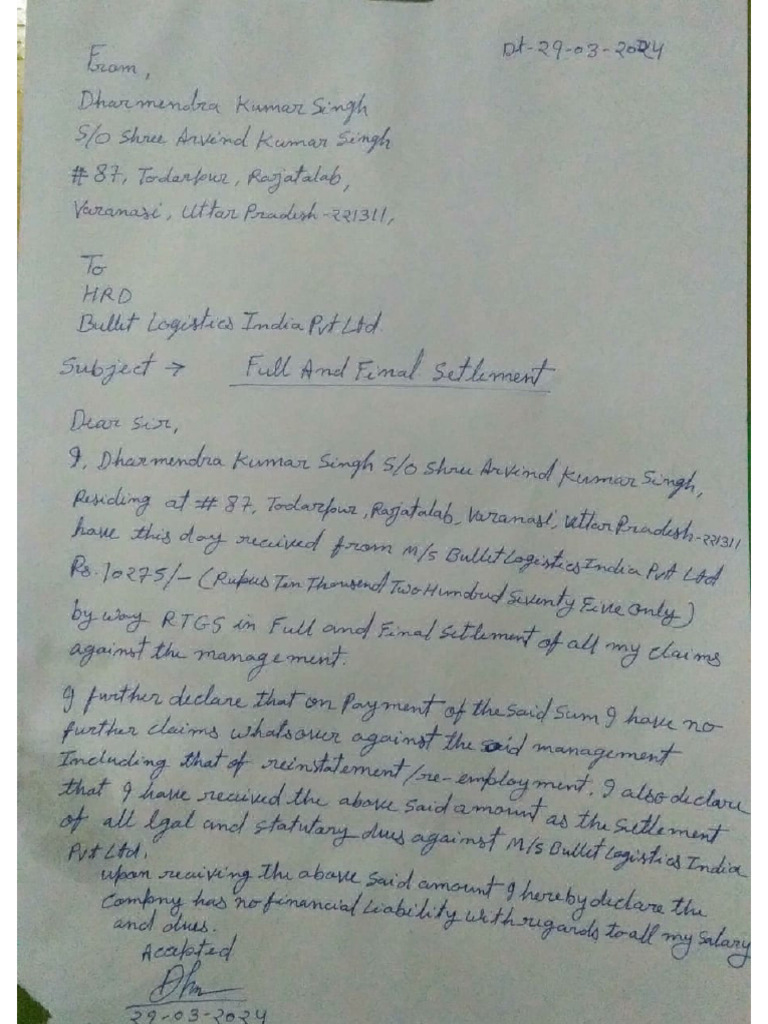 Dt-29-03-2024
From,
Dharmendra Kumar Singh
S/o Shree Arvind Kumar Singh
# 87, Todarpur, Rajatalab,
Varanasi, Uttar Pradesh-221311,
To
HRD
Bullet Logistics India Pvt Ltd.
Subject → Full And Final Setlement
Dear Sir,
I, Dharmendra Kumar Singh S/o Shree Arvind Kumar Singh,
Residing at # 87, Todarpur, Rajatalab, Varanasi, Uttar Pradesh-221311
have this day received from M/s Bullet Logistics India Pvt Ltd
Rs. 10275/- (Rupees Ten Thousend Two Hundred Seventy Five only)
by way RTGS in Full and Final Setlement of all my claims
against the management.
I further declare that on Payment of the said sum I have no
further claims whatsover against the said management
Including that of reinstatement/re-employment. I also declare
that I have received the above said amount as the Settlement
of all lgal and statutary dues against M/s Bullet Logistics India
Pvt Ltd.
upon receiving the above said amount I hereby declare the
Company has no financial Liability with regards to all my salary
and dues.
Accepted
Dhr
29-03-2024